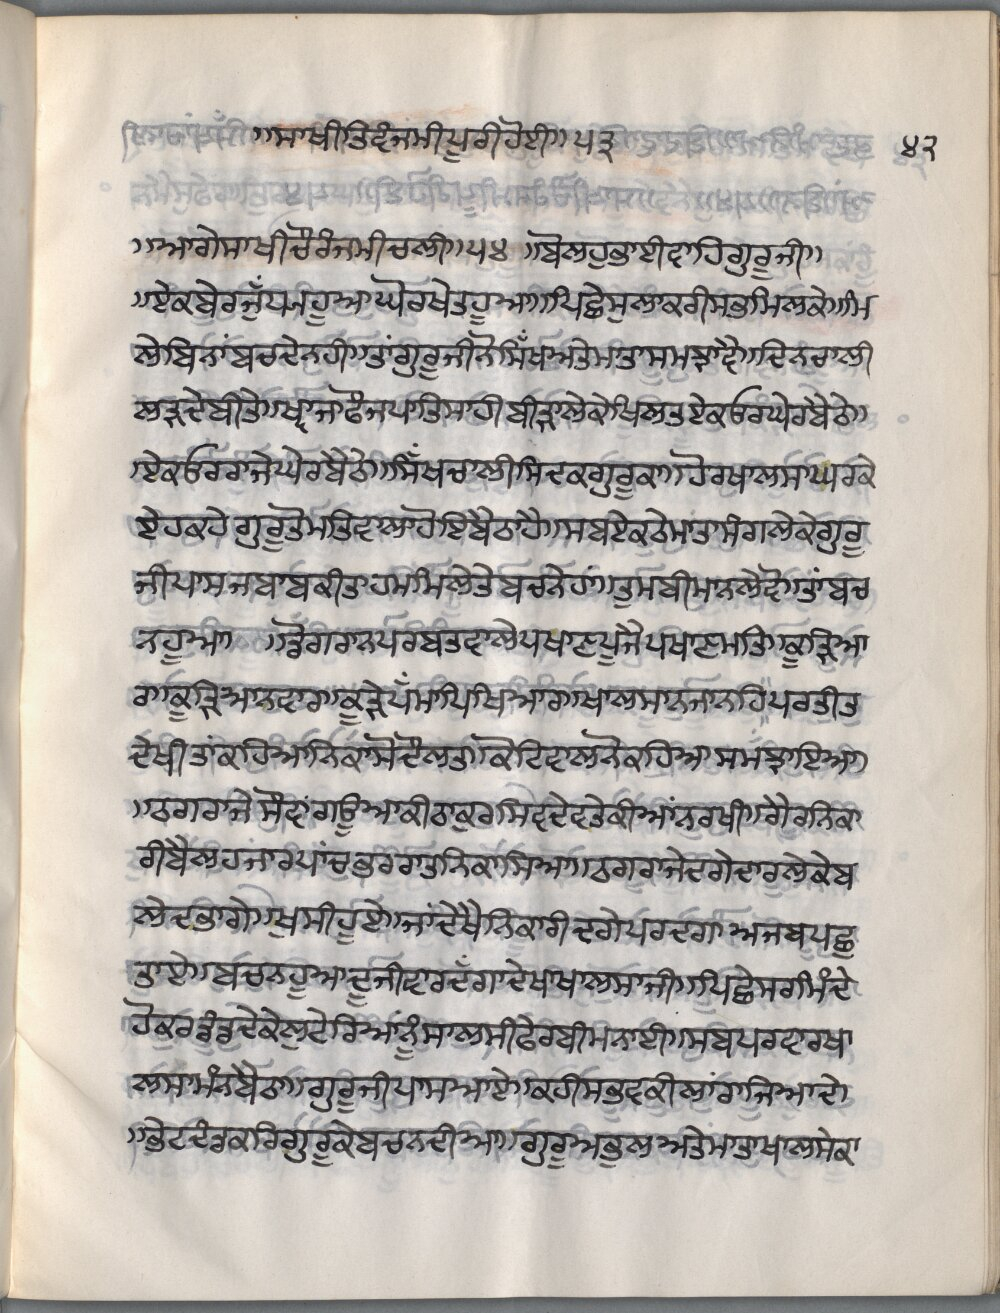 ॥ਸਾਖੀ ਤਿਵੰਜਮੀ ਪੂਰੀ ਹੋਈ॥੫੩ ੪੨
॥ਅਗੇ ਸਾਖੀ ਚੌਰੰਜਮੀ ਚਲੀ॥੫੪ ॥ਬੋਲਹੁ ਭਾਈ ਵਾਹਿਗੁਰੂ ਜੀ॥
॥ਏਕ ਬੇਰ ਜੁੱਧ ਮਹੂਆ ਘੋਰ ਖੇਤ ਹੂਆ॥ ਪਿਛੇ ਸੁਲਾ ਕਰੀ ਸਭ ਮਿਲਕੇ॥ਮਿ
ਲੇ ਬਿਨਾਂ ਬਚਦੇ ਨਹੀ॥ਤਾਂ ਗੁਰੂ ਜੀ ਨੇ ਸਿੱਖ ਅਤੇ ਮਾਤਾ ਸਮਝਾਵੈ॥ਦਿਨ ਚਾਲੀ
ਲੜਦੇ ਬੀਤੇ॥ਖ੍ਵਾਜਾ ਫੌਜ ਪਾਤਿਸਾਹੀ ਬੀੜਾ ਲੇਕੇ ਖਿਲਤ ਏਕ ਓਰ ਘੇਰ ਬੈਠੇ॥
॥ਏਕ ਓਰ ਰਾਜੇ ਘੇਰ ਬੈਠੇ॥ਸਿੱਖ ਚਾਲੀ ਸਿਦਕ ਗੁਰੂ ਕਾ॥ਹੋਰ ਖਾਲਸਾ ਘਰਕੇ
ਏਹ ਕਹੇ ਗੁਰੂ ਤੋ ਮਤਿਵਾਲਾ ਹੋਇ ਬੈਠਾ ਹੈ॥ਸਬ ਏਕਠੇ ਮਾਤਾ ਸੰਗ ਲੇਕੇ ਗੁਰੂ
ਜੀ ਪਾਸ ਜਬਾਬ ਕੀਤਾ ਹਮ ਮਿਲੇ ਤੇ ਬਚਨੇ ਹਾਂ॥ਤੁਮ ਬੀ ਮਾਨ ਲੇਵੋ॥ਤਾਂ ਬਚ
ਨ ਹੂਆ॥ ॥ਡੂੰਗਰਾਨ ਪਰਬਤ ਵਾਲੇ ਪਖਾਣ ਪੂਜੈ ਪਖਾਣ ਮਤਿ॥ਕੂੜਿਆ
ਰਾ ਕੂੜਿਆਨ ਵਾਰਾ ਕੂੜੇ ਪੰਮਾ ਪਿਖਿਆਰਾ ਖਾਲਸਾ ਨ ਜਾਨਹਿ ਪਰਤੀਤ
ਦੇਖੀ ਤਾਂ ਕਹਿਆ ਨਿਕਾਸੋ ਦੌਲਤਾ ਕੋਟਿਵਾਲ ਨੋ ਕਹਿਆ ਸਮੰਝਾਇਆ
॥ਠਗ ਰਾਜੇ ਸੌਦਾਂ ਗਊਆ ਕੀ ਠਾਕਰ ਸਿਵਦੇਵਤੇ ਕੀ ਆਂਨ ਰਖੀ॥ਗੈਰ ਨਿਕਾ
ਰੀ ਬੈਲ ਹਜਾਰ ਪਾਂਚ ਭਰ ਰਾਤ ਨਿਕਾਸਿਆ॥ਠਗ ਰਾਜੇ ਦਗੇਦਾਰ ਲੇਕੇ ਬ
ਲੇਦ ਭਾਗੇ॥ਖੁਸੀ ਹੂਏ॥ਜਾਂ ਦੇਖੈ ਨਿਕਾਰੀ ਦਗੇ ਪਰ ਦਗਾ ਅਜਬ ਪਛੂ
ਤਾਏ॥ਬਚਨ ਹੂਆ ਦੂਜੀ ਵਾਰ ਦੱਗਾ ਦੇਖਾ ਖਾਲਸਾ ਜੀ॥ਪਿਛੇ ਸਰੀਮੰਦੇ
ਹੋਕਰ ਡੂੰਡਦੇਕੇ ਲੁਟੇਰਿਆਂ ਨੂੰ ਸਾਲਸੀ ਫੇਰ ਬੀ ਮਨਾਈ॥ਸਬ ਪਰਵਾਰ ਖਾ
ਲਸਾ ਮੰਨ ਬੈਠਾ॥ਗੁਰੂ ਜੀ ਪਾਸ ਆਏ॥ਕਹੀ ਸਭ ਵਕੀਲਾਂ ਰਾਜਿਆ ਦੇ
॥ਭੇਟ ਦੰਡ ਕਰਿ ਗੁਰੂ ਕੇ ਬਚਨ ਦੀਆ॥ਗੁਰੂ ਅਭੁਲ ਅਤੇ ਮਾਤਾ ਖਾਲਸੇ ਕਾ